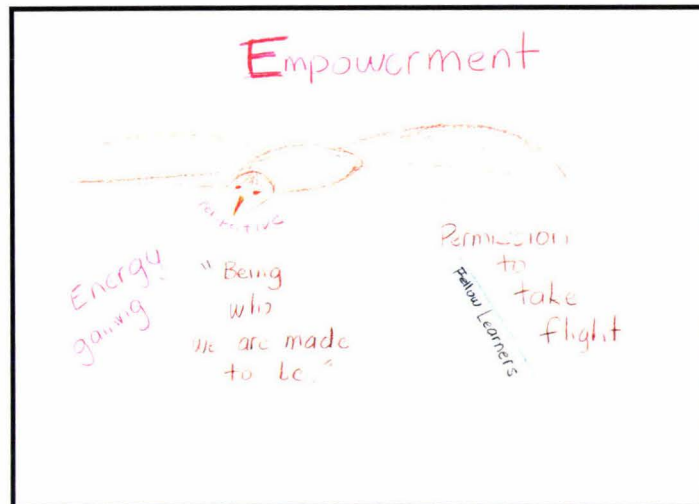 Empowerment
Energy
gaining
"Being
who
we are made
to be."
Permission
to
take
flight
Fellow Learners